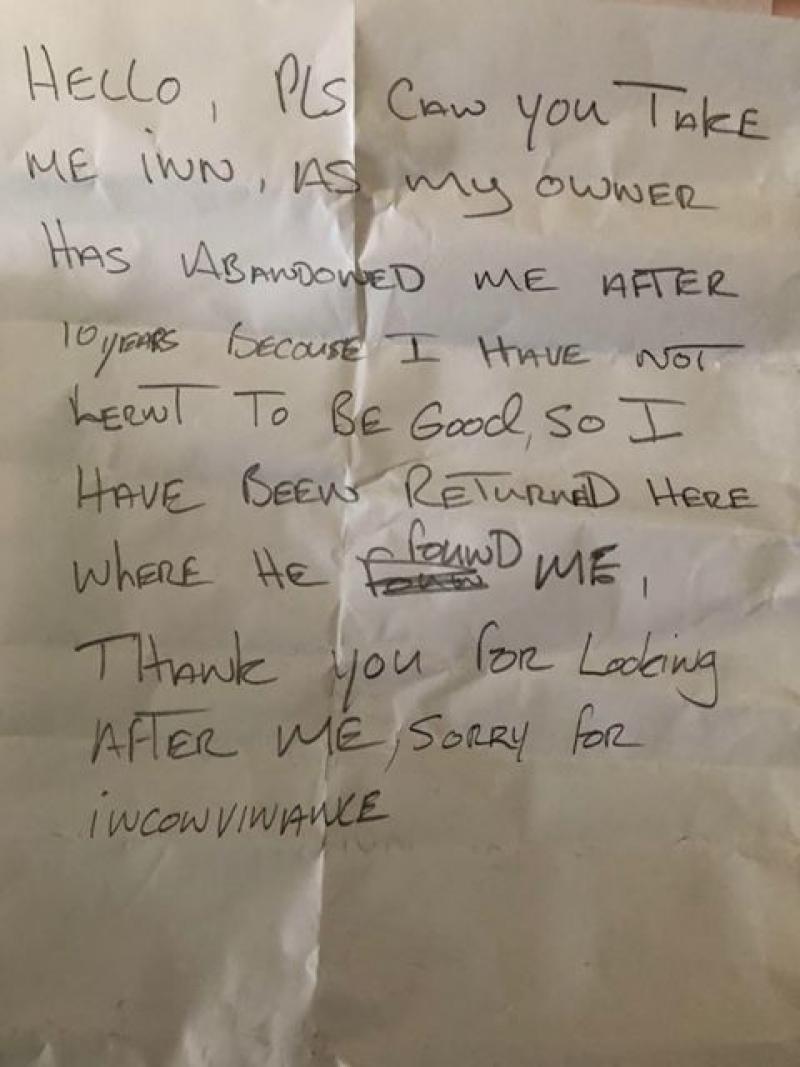 HELLO, PLS CAN YOU TAKE
ME INN, AS MY OWNER
HAS ABANDONED ME AFTER
10 YEARS BECOUSE I HAVE NOT
LERNT TO BE GOOD, SO I
HAVE BEEN RETURNED HERE
WHERE HE found ME,
THANK YOU FOR Looking
AFTER ME, SORRY FOR
INCONVINANCE